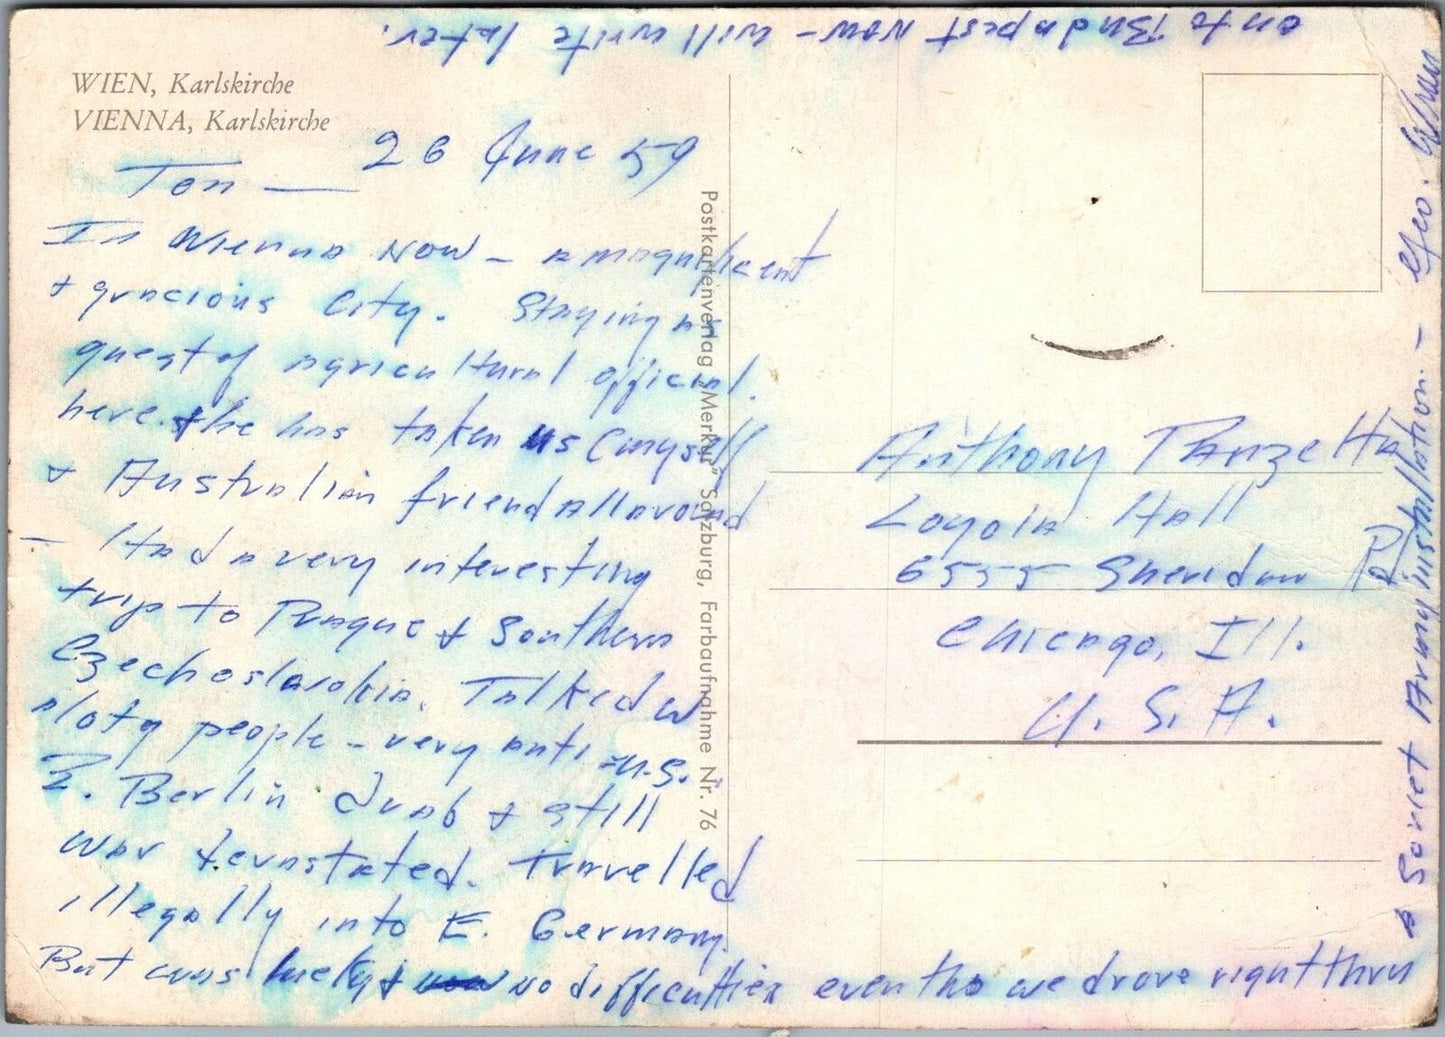 WIEN, Karlskirche
VIENNA, Karlskirche
26 June 59
Ton —
In Vienna now – a magnificent
+ gracious city. Staying as
guest of agricultural official
here. + he has taken us (myself
+ Australian friend all around
– Had a very interesting
trip to Prague + Southern
Czechoslavokia. Talked w
a lot of people – very anti-U.S.
E. Berlin drab + still
war devastated. Travelled
illegally into E. Germany.
But was lucky + no difficulties even tho we drove right thru
a Soviet Army installation. – Geo.
on to Budapest now – will write later.
Postkartenverlag „Merkur“ Salzburg, Farbaufnahme Nr. 76
Anthony Panzetta
Loyola Hall
6555 Sheridan Rd
Chicago, Ill.
U. S. A.